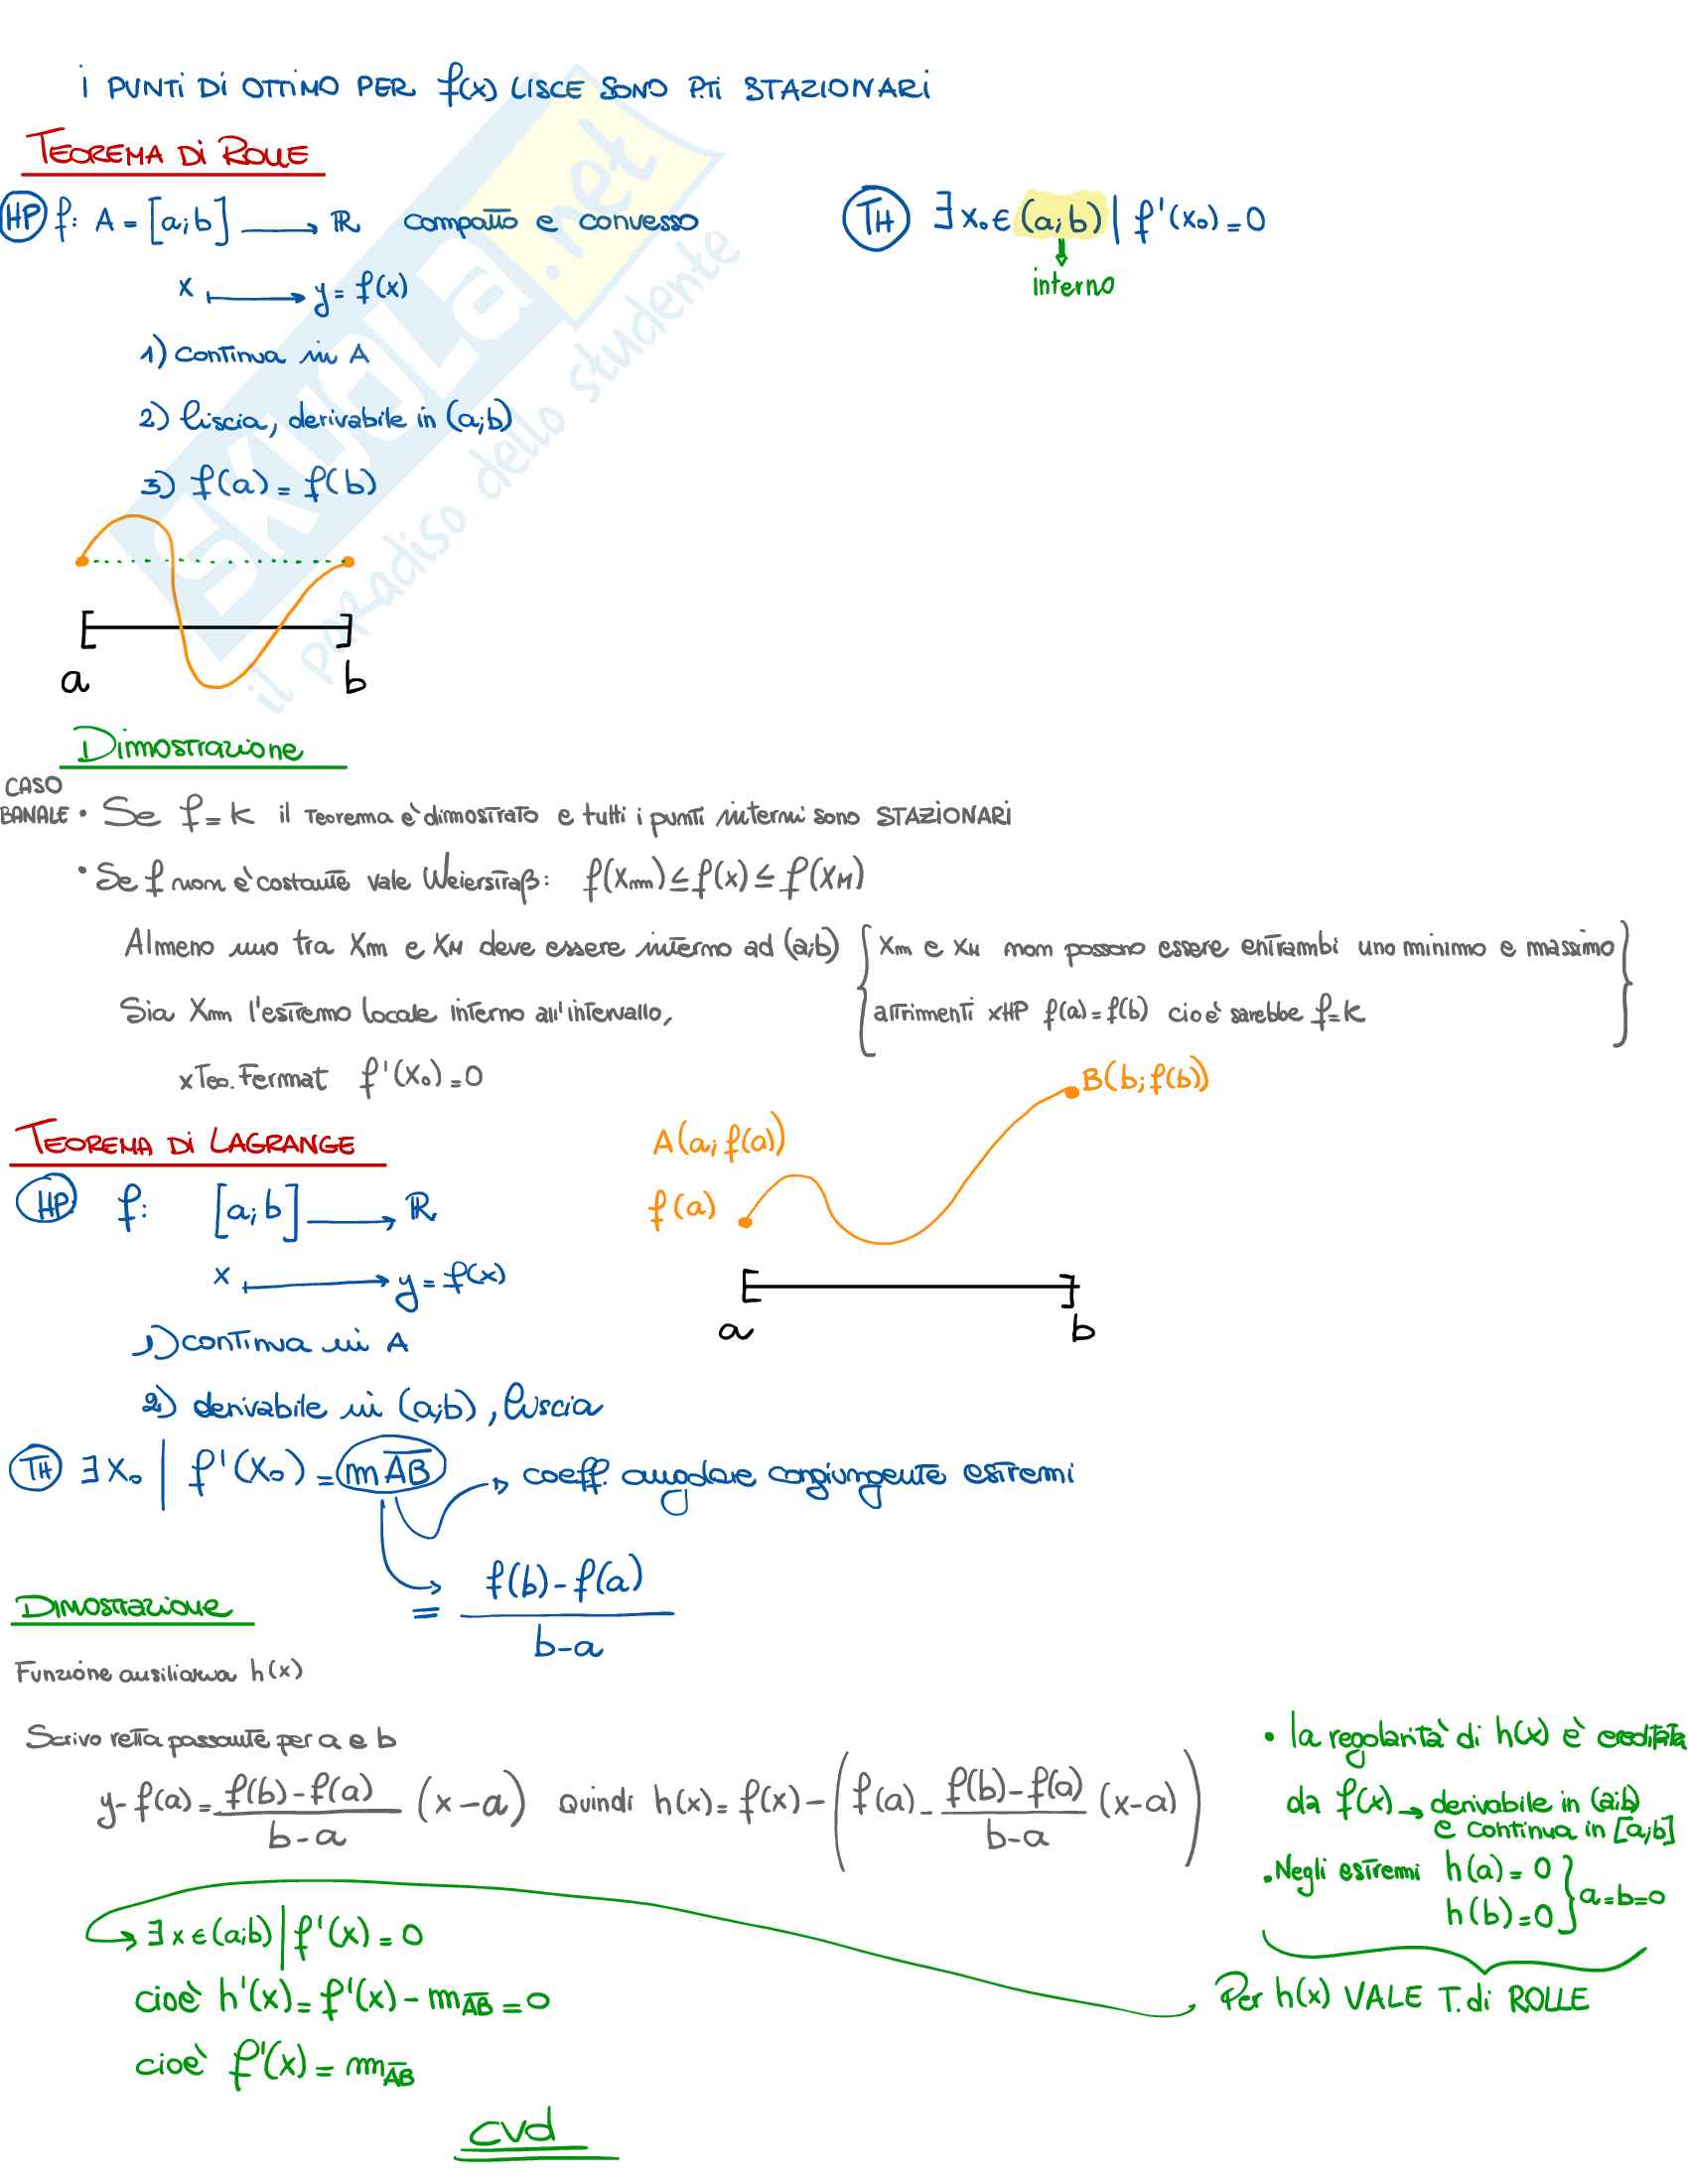 i PUNTI DI OTTIMO PER f(x) LISCE SONO P.TI STAZIONARI
TEOREMA DI ROLLE
HP f: A = [a;b] → ℝ compatto e convesso
TH ∃ x₀ ∈ (a;b) | f'(x₀) = 0
interno
x ↦ y = f(x)
1) continua in A
2) liscia, derivabile in (a;b)
3) f(a) = f(b)
a b
SKUOLA.net
il paradiso dello studente
Dimostrazione
CASO BANALE • Se f = k il Teorema è dimostrato e tutti i punti interni sono STAZIONARI
• Se f non è costante vale Weierstraß: f(xm) ≤ f(x) ≤ f(xM)
Almeno uno tra Xm e XM deve essere interno ad (a;b) { Xm e XM non possono essere entrambi uno minimo e massimo
altrimenti xHP f(a) = f(b) cioè sarebbe f = k }
Sia Xm l'estremo locale interno all'intervallo,
xTeo. Fermat f'(x₀) = 0
TEOREMA DI LAGRANGE
HP f: [a;b] → ℝ
x ↦ y = f(x)
1) continua in A
2) derivabile in (a;b), liscia
A(a; f(a))
f(a)
B(b; f(b))
a b
TH ∃ X₀ | f'(X₀) = m AB → coeff. angolare congiungente estremi
= f(b) - f(a) / b - a
DIMOSTRAZIONE
Funzione ausiliaria h(x)
Scrivo retta passante per a e b
y - f(a) = f(b) - f(a) / b - a (x - a) quindi h(x) = f(x) - ( f(a) - f(b) - f(a) / b - a (x - a) )
• la regolarità di h(x) è ereditata
da f(x) → derivabile in (a;b)
e continua in [a;b]
• Negli estremi h(a) = 0
h(b) = 0 } a = b = 0
Per h(x) VALE T. di ROLLE
→ ∃ x ∈ (a;b) | f'(x) = 0
cioè h'(x) = f'(x) - m AB = 0
cioè f'(x) = m AB
cvd